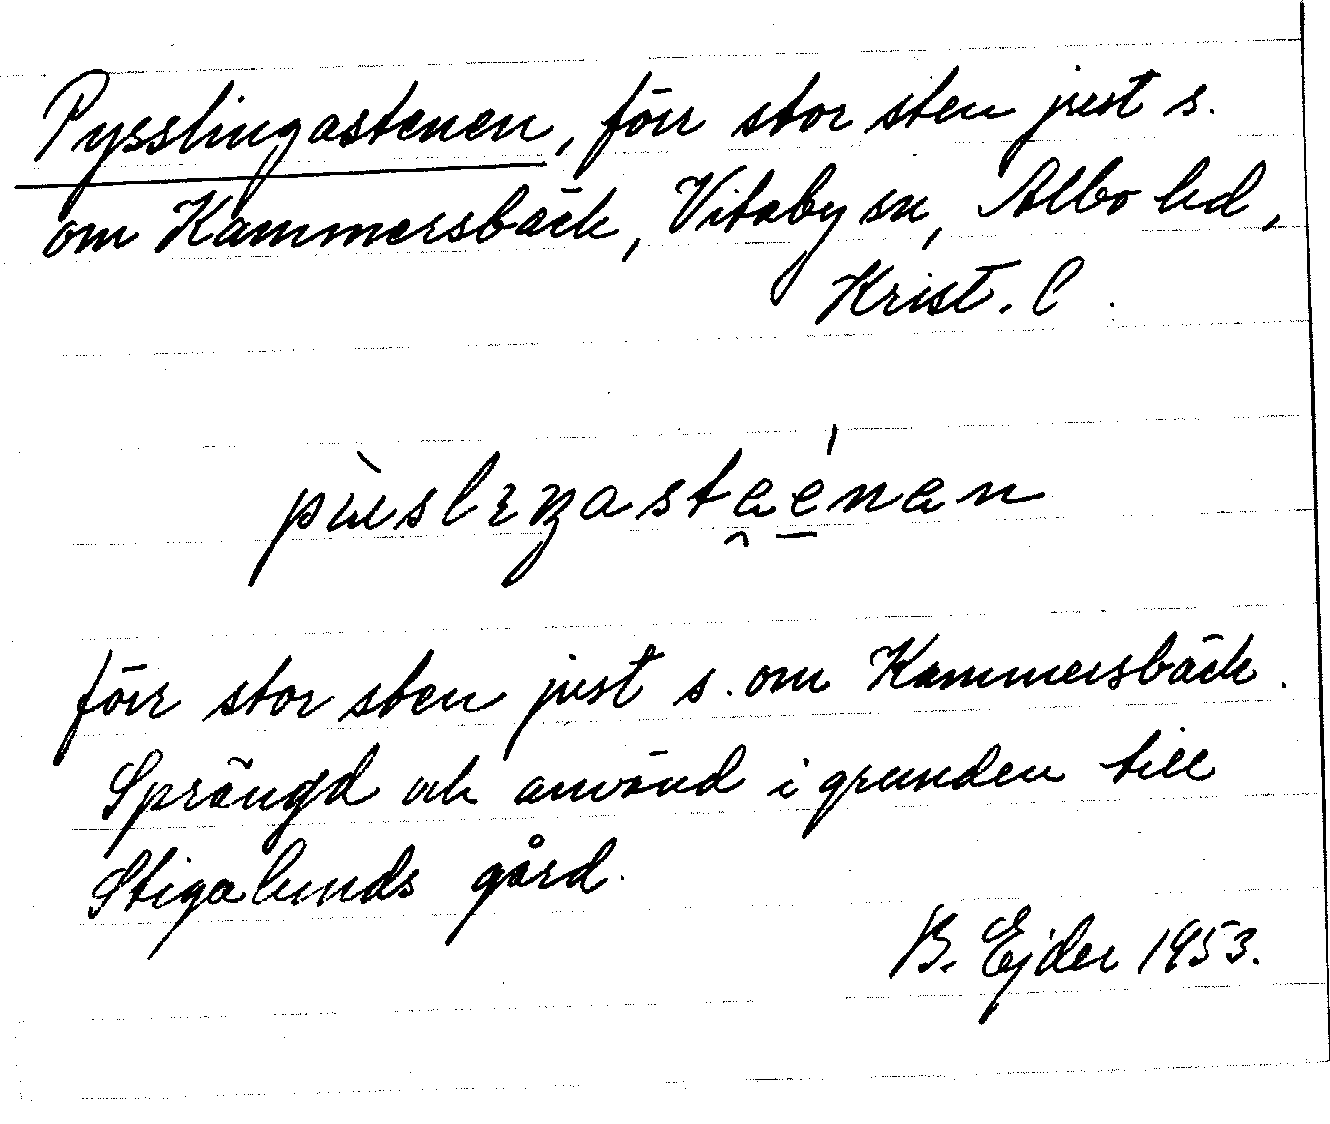 Pysslingastenen, förr stor sten just s.
om Kammersbäck, Vitaby sn, Albo hd,
Krist. l.
förr stor sten just s. om Kammersbäck.
Sprängd och använd i grunden till
Stigalunds gård.
B. Ejder 1953.